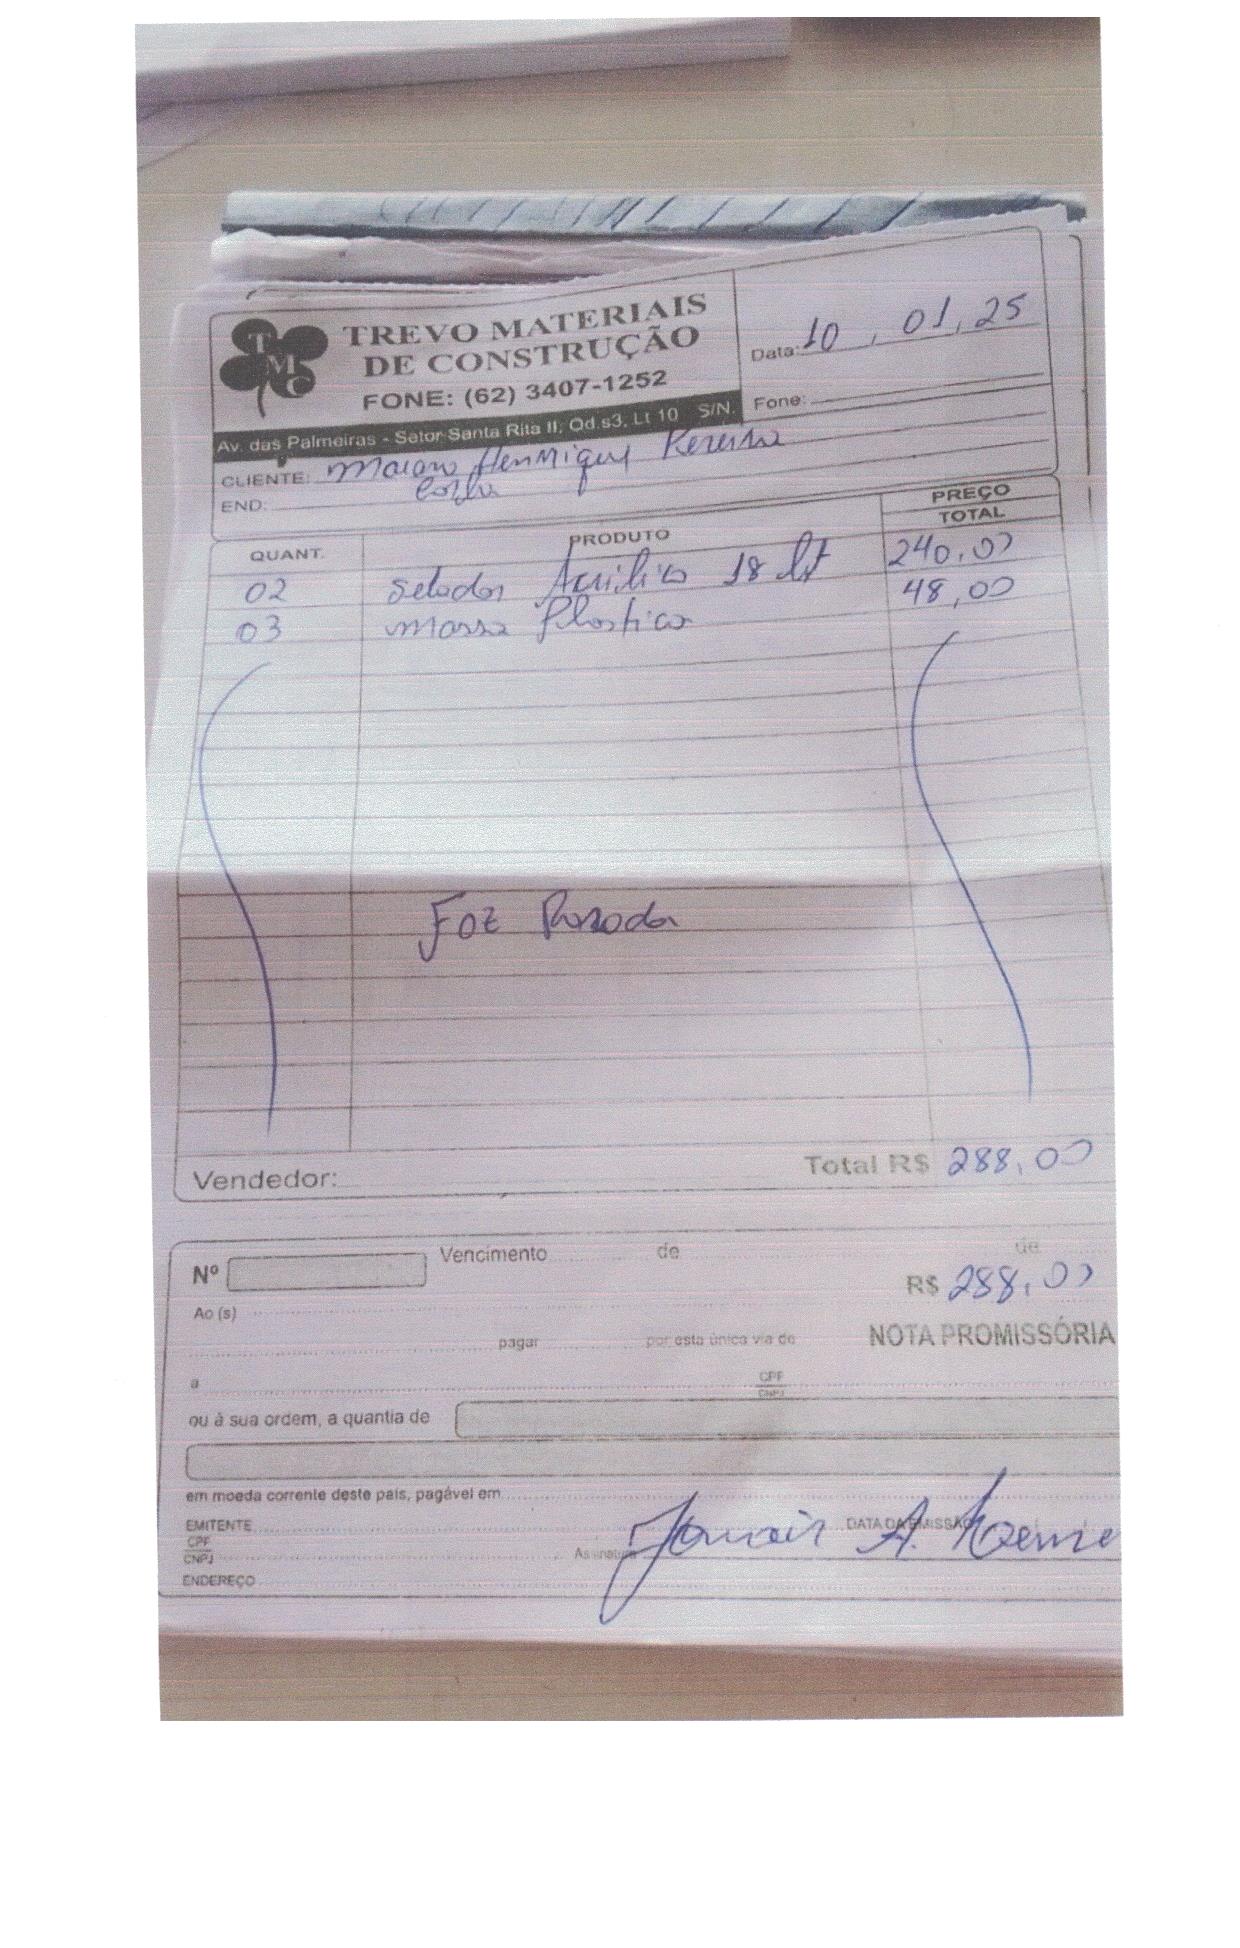 TMC
TREVO MATERIAIS
DE CONSTRUÇÃO
FONE: (62) 3407-1252
Av. das Palmeiras - Setor Santa Rita II, Qd.s3, Lt 10 S/N.
Data: 10, 01, 25
Fone:
CLIENTE: Henrique Pereira
END: Costa
QUANT. PRODUTO PREÇO
TOTAL
02 Selador Acrilico 18 lt 240,00
03 Massa Plastica 48,00
Foz
Vendedor: Total R$ 288,00
Nº Vencimento de de
R$ 288,00
Ao (s)
pagar por esta única via de NOTA PROMISSÓRIA
a CPF
CNPJ
ou à sua ordem, a quantia de
em moeda corrente deste país, pagável em
EMITENTE DATA DA EMISSÃO
CPF
CNPJ Assinatura A.
ENDEREÇO